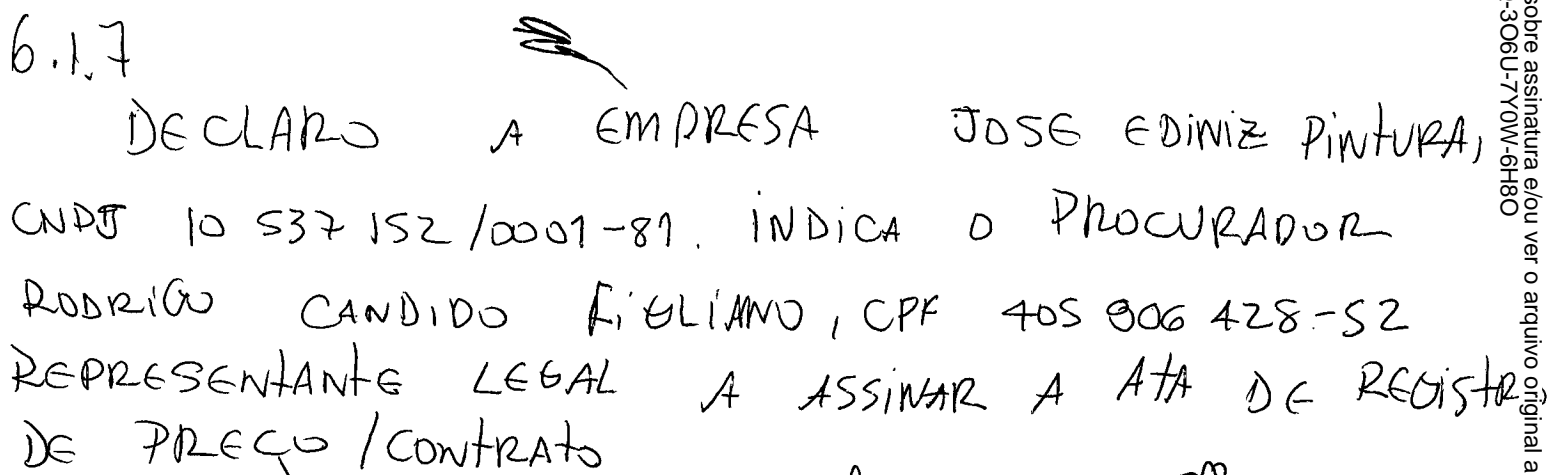 6.1.7
DECLARO A EMPRESA JOSE EDINIZ PINTURA,
CNPJ 10 537 152/0001-81. INDICA O PROCURADOR
RODRIGO CANDIDO FIGLIANO, CPF 405 906 428-52
REPRESENTANTE LEGAL A ASSINAR A ATA DE REGISTRO
DE PREÇO/CONTRATO
sobre assinatura e/ou ver o arquivo original a
-3O6U-7Y0W-6H8O